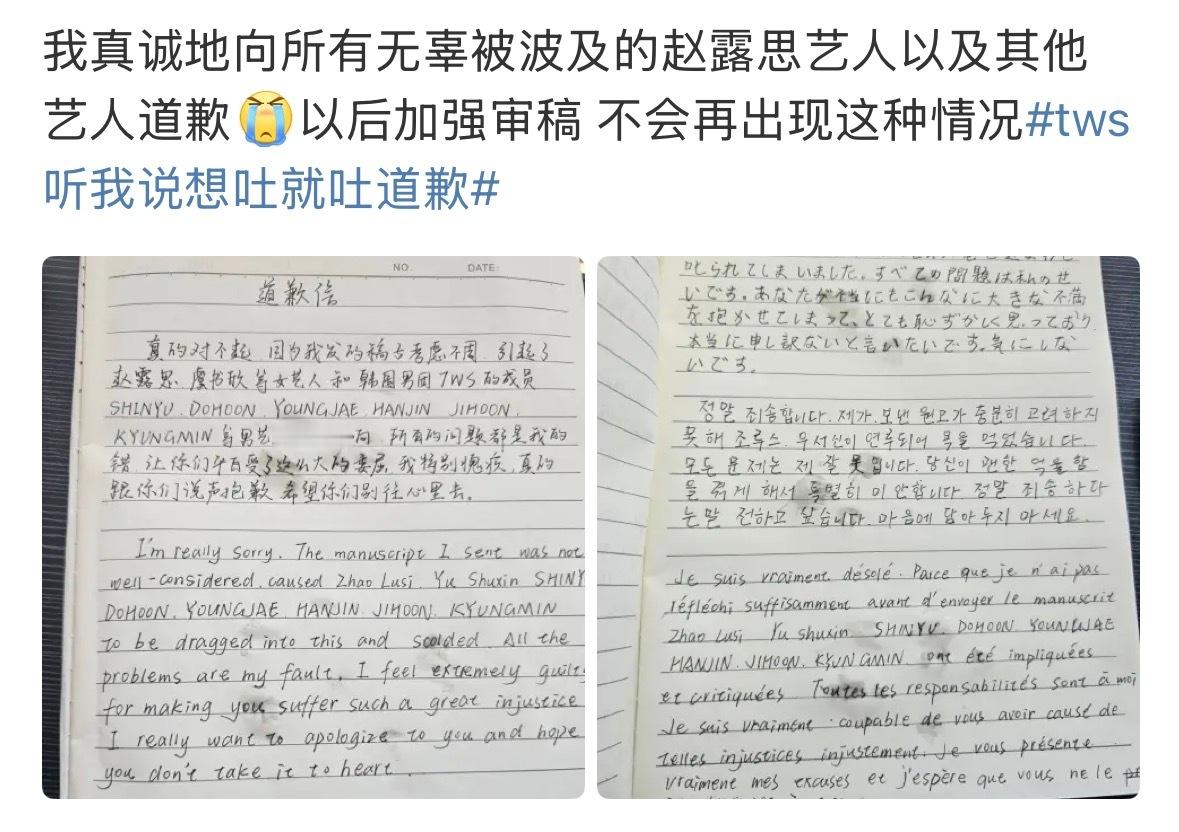 我真诚地向所有无辜被波及的赵露思艺人以及其他
艺人道歉😭以后加强审稿 不会再出现这种情况#tws
听我说想吐就吐道歉#
NO. DATE:
道歉信
真的对不起,因为我发的稿子考虑不周,引起了
赵露思、虞书欣等女艺人和韩国男团TWS的成员
SHINYU. DOHOON. YOUNGJAE. HANJIN JIHOON.
KYUNGMIN 等男艺 所有的问题都是我的
错,让你们平白受了这么大的委屈,我特别愧疚,真的
跟你们说声抱歉 希望你们别往心里去。
I'm really sorry. The manuscript I sent was not
well-considered, caused Zhao Lusi, Yu Shuxin SHINY
DOHOON. YOUNGJAE. HANJIN. JIHOON. KYUNGMIN
to be dragged into this and scolded. All the
problems are my fault. I feel extremely guilt
for making you suffer such a great injustice
I really want to apologize to you and hope
you don't take it to heart.
叱られてしまいました。すべての問題は私のせ
いです。あなたが本当にもこんなに大きな不満
を抱かせてしまって、とても恥ずかしく思っており
本当に申し訳ないと言いたいです。気にしな
いです。
정말 죄송합니다. 제가 보낸 원고가 충분히 고려하지
못해 조루스. 우서신이 연루되어 욕을 먹었습니다.
모든 문제는 제 잘못입니다. 당신이 편한 억울함
을 겪게 해서 특별히 미안합니다 정말 죄송하다
는말 전하고 싶습니다. 마음에 담아두지 마세요.
Je suis vraiment désolé. Parce que je n'ai pas
réfléchi suffisamment avant d'envoyer le manuscrit
Zhao Lusi Yu shuxin SHINYU. DOHOON. YOUNGJAE
HANJIN. JIHOON. KYUNGMIN. ont été impliquées
et critiquées. Toutes les responsabilités sont à moi
Je suis vraiment coupable de vous avoir causé de
telles injustices injustement. Je vous présente
vraiment mes excuses et j'espère que vous ne le